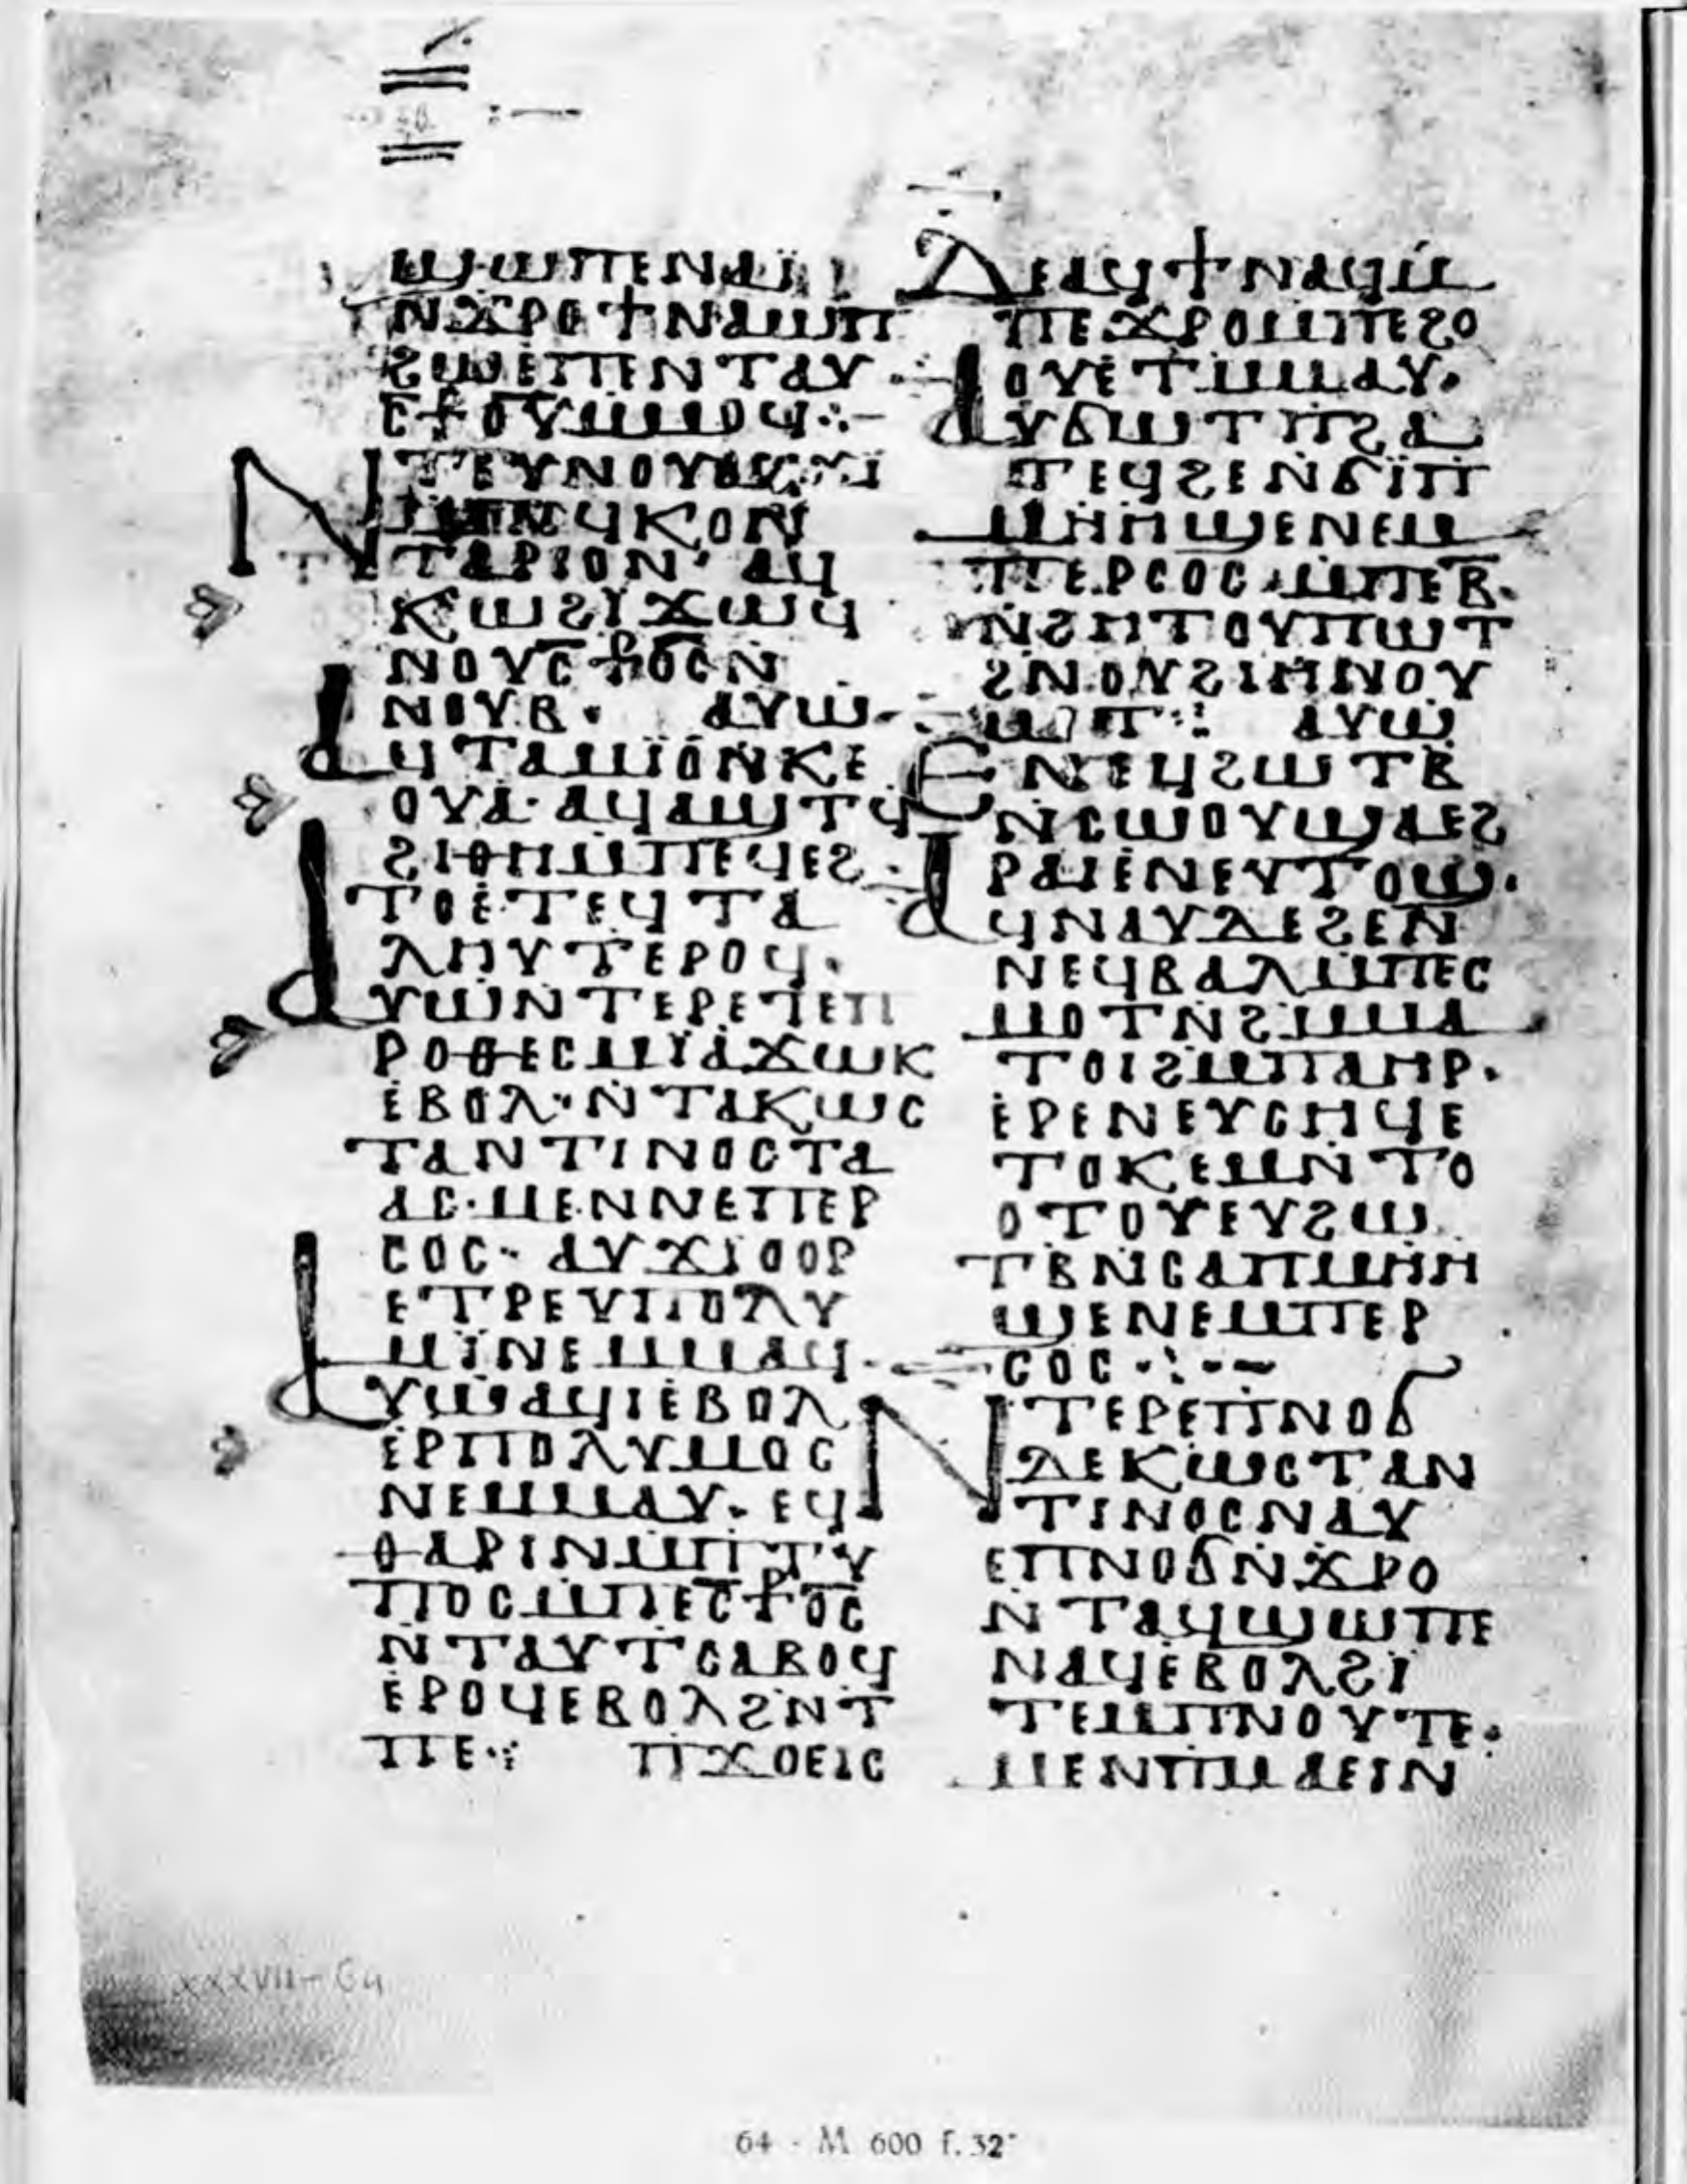 ϣⲱⲡⲉ ⲛⲁⲓ̈
ⲛϫⲣⲟ ϯⲛⲁϣⲡ
ϩⲱ ⲉⲡⲉⲛⲧⲁⲩ
ⲥ⳨ⲟⲩ ⲙⲙⲟϥ ⁘–
ⲛⲧⲉⲩⲛⲟⲩ
ϥⲕⲟⲛ
ⲧⲁⲣⲓⲟⲛ· ⲁϥ
ⲕⲱ ϩⲓϫⲱϥ
ⲛⲟⲩⲥ̅⳨ⲟ̅ⲥ̅ ⲛ
ⲛⲟⲩⲃ· ⲁⲩⲱ
ⲁϥⲧⲁⲙⲓⲟ ⲛⲕⲉ
ⲟⲩⲁ· ⲁϥⲁϣⲧϥ
ϩⲓⲑⲏ ⲙⲡⲉϥⲉϩ
ⲧⲟ ⲉⲧⲉϥⲧⲁ
ⲗⲏⲩⲧ ⲉⲣⲟϥ·
ⲁⲩⲱ ⲛⲧⲉⲣⲉ ⲧⲉⲡ
ⲣⲟⲑⲉⲥⲙⲓ̈ⲁ ϫⲱⲕ
ⲉⲃⲟⲗ· ⲛⲧⲁ ⲕⲱⲥ
ⲧⲁⲛⲧⲓⲛⲟⲥ ⲧⲁ
ⲁⲥ· ⲙⲉⲛ ⲛⲉⲡⲉⲣ
ⲥⲟⲥ· ⲁⲩϫⲓⲟⲟⲣ
ⲉⲧⲣⲉⲩⲡⲟⲗⲩ
ⲙⲓ ⲛⲉⲙⲙⲁϥ·
ⲁⲩⲱ ⲁϥⲓ ⲉⲃⲟⲗ
ⲉⲣⲡⲟⲗⲩⲙⲟⲥ
ⲛⲉⲙⲙⲁⲩ· ⲉϥ
ⲑⲁⲣⲓ ⲛⲙⲡⲧⲩ
ⲡⲟⲥ ⲙⲡⲉⲥ̅⳨ⲟ̅ⲥ̅
ⲛⲧⲁⲩⲧⲥⲁⲃⲟϥ
ⲉⲣⲟϥ ⲉⲃⲟⲗ ϩⲛ ⲧ
ⲡⲉ·⁝ ⲡϫⲟⲉⲓⲥ
ⲇⲉ ⲁϥϯ ⲛⲁϥ ⲙ
ⲡⲉϫⲣⲟ ⲙⲡⲉϩⲟ
ⲟⲩ ⲉⲧⲙⲙⲁⲩ·
ⲁⲩϭⲱⲧⲡ ϩⲁ
ⲧⲉϥϩⲉ ⲛϭⲓ ⲡ
ⲙⲏⲏϣⲉ ⲛⲉⲙ
ⲡⲉⲣⲥⲟⲥ ⲙⲡⲉⲃ·
ⲛϩⲏⲧⲟⲩ ⲡⲱⲧ
ϩⲛ ⲟⲩϩⲓⲏ ⲛⲟⲩ
ⲱⲧ·⁝ ⲁⲩⲱ
ⲉⲛⲉϥϩⲱⲧⲃ
ⲛⲥⲱⲟⲩ ϣⲁϩ
ⲣⲁⲓ ⲉⲛⲉⲩⲧⲟϣ·
ⲁϥⲛⲁⲩ ⲇⲉ ϩⲉⲛ
ⲛⲉϥⲃⲁⲗ ⲙⲡⲉⲥ
ⲙⲟⲧ ⲛϩⲙⲙⲁ
ⲧⲟⲓ ϩⲙ ⲡⲁⲏⲣ·
ⲉⲣⲉ ⲛⲉⲩⲥⲏϥⲉ
ⲧⲟⲕⲉⲙ ⲛⲧⲟ
ⲟⲧⲟⲩ ⲉⲩϩⲱ
ⲧⲃ ⲛⲥⲁ ⲡⲙⲏⲏ
ϣⲉ ⲛⲉⲙⲡⲉⲣ
ⲥⲟⲥ ·⁝·–
ⲛⲧⲉⲣⲉ ⲡⲛⲟϭ
ⲇⲉ ⲕⲱⲥⲧⲁⲛ
ⲧⲓⲛⲟⲥ ⲛⲁⲩ
ⲉⲡⲛⲟϭ ⲛϫⲣⲟ
ⲛⲧⲁϥϣⲱⲡⲉ
ⲛⲁϥ ⲉⲃⲟⲗ ϩⲓ
ⲧⲉⲙ ⲡⲛⲟⲩⲧⲉ·
ⲙⲉⲛ ⲡⲙⲁⲉⲓⲛ
XXXVII–64
64 - M 600 f. 32ᵛ